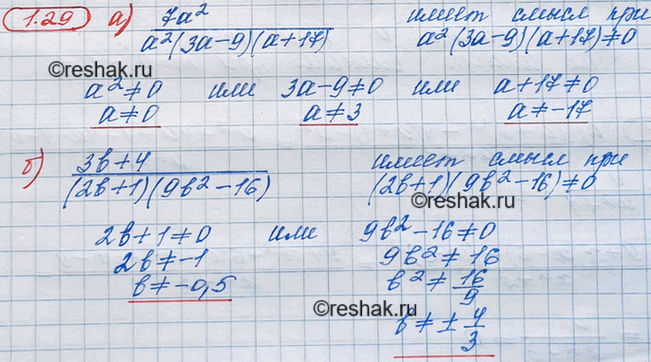 1.29 а) 7a²/(a²(3a−9)(a+17)) имеет смысл при
a²(3a−9)(a+17)≠0
©reshak.ru
a²≠0 или 3a−9≠0 или a+17≠0
a≠0 a≠3 a≠−17
©reshak.ru
б) (3b+4)/((2b+1)(9b²−16)) имеет смысл при
(2b+1)(9b²−16)≠0
2b+1≠0 или 9b²−16≠0
2b≠−1 9b²≠16
b≠−0,5 b²≠16/9
©reshak.ru
b≠±4/3